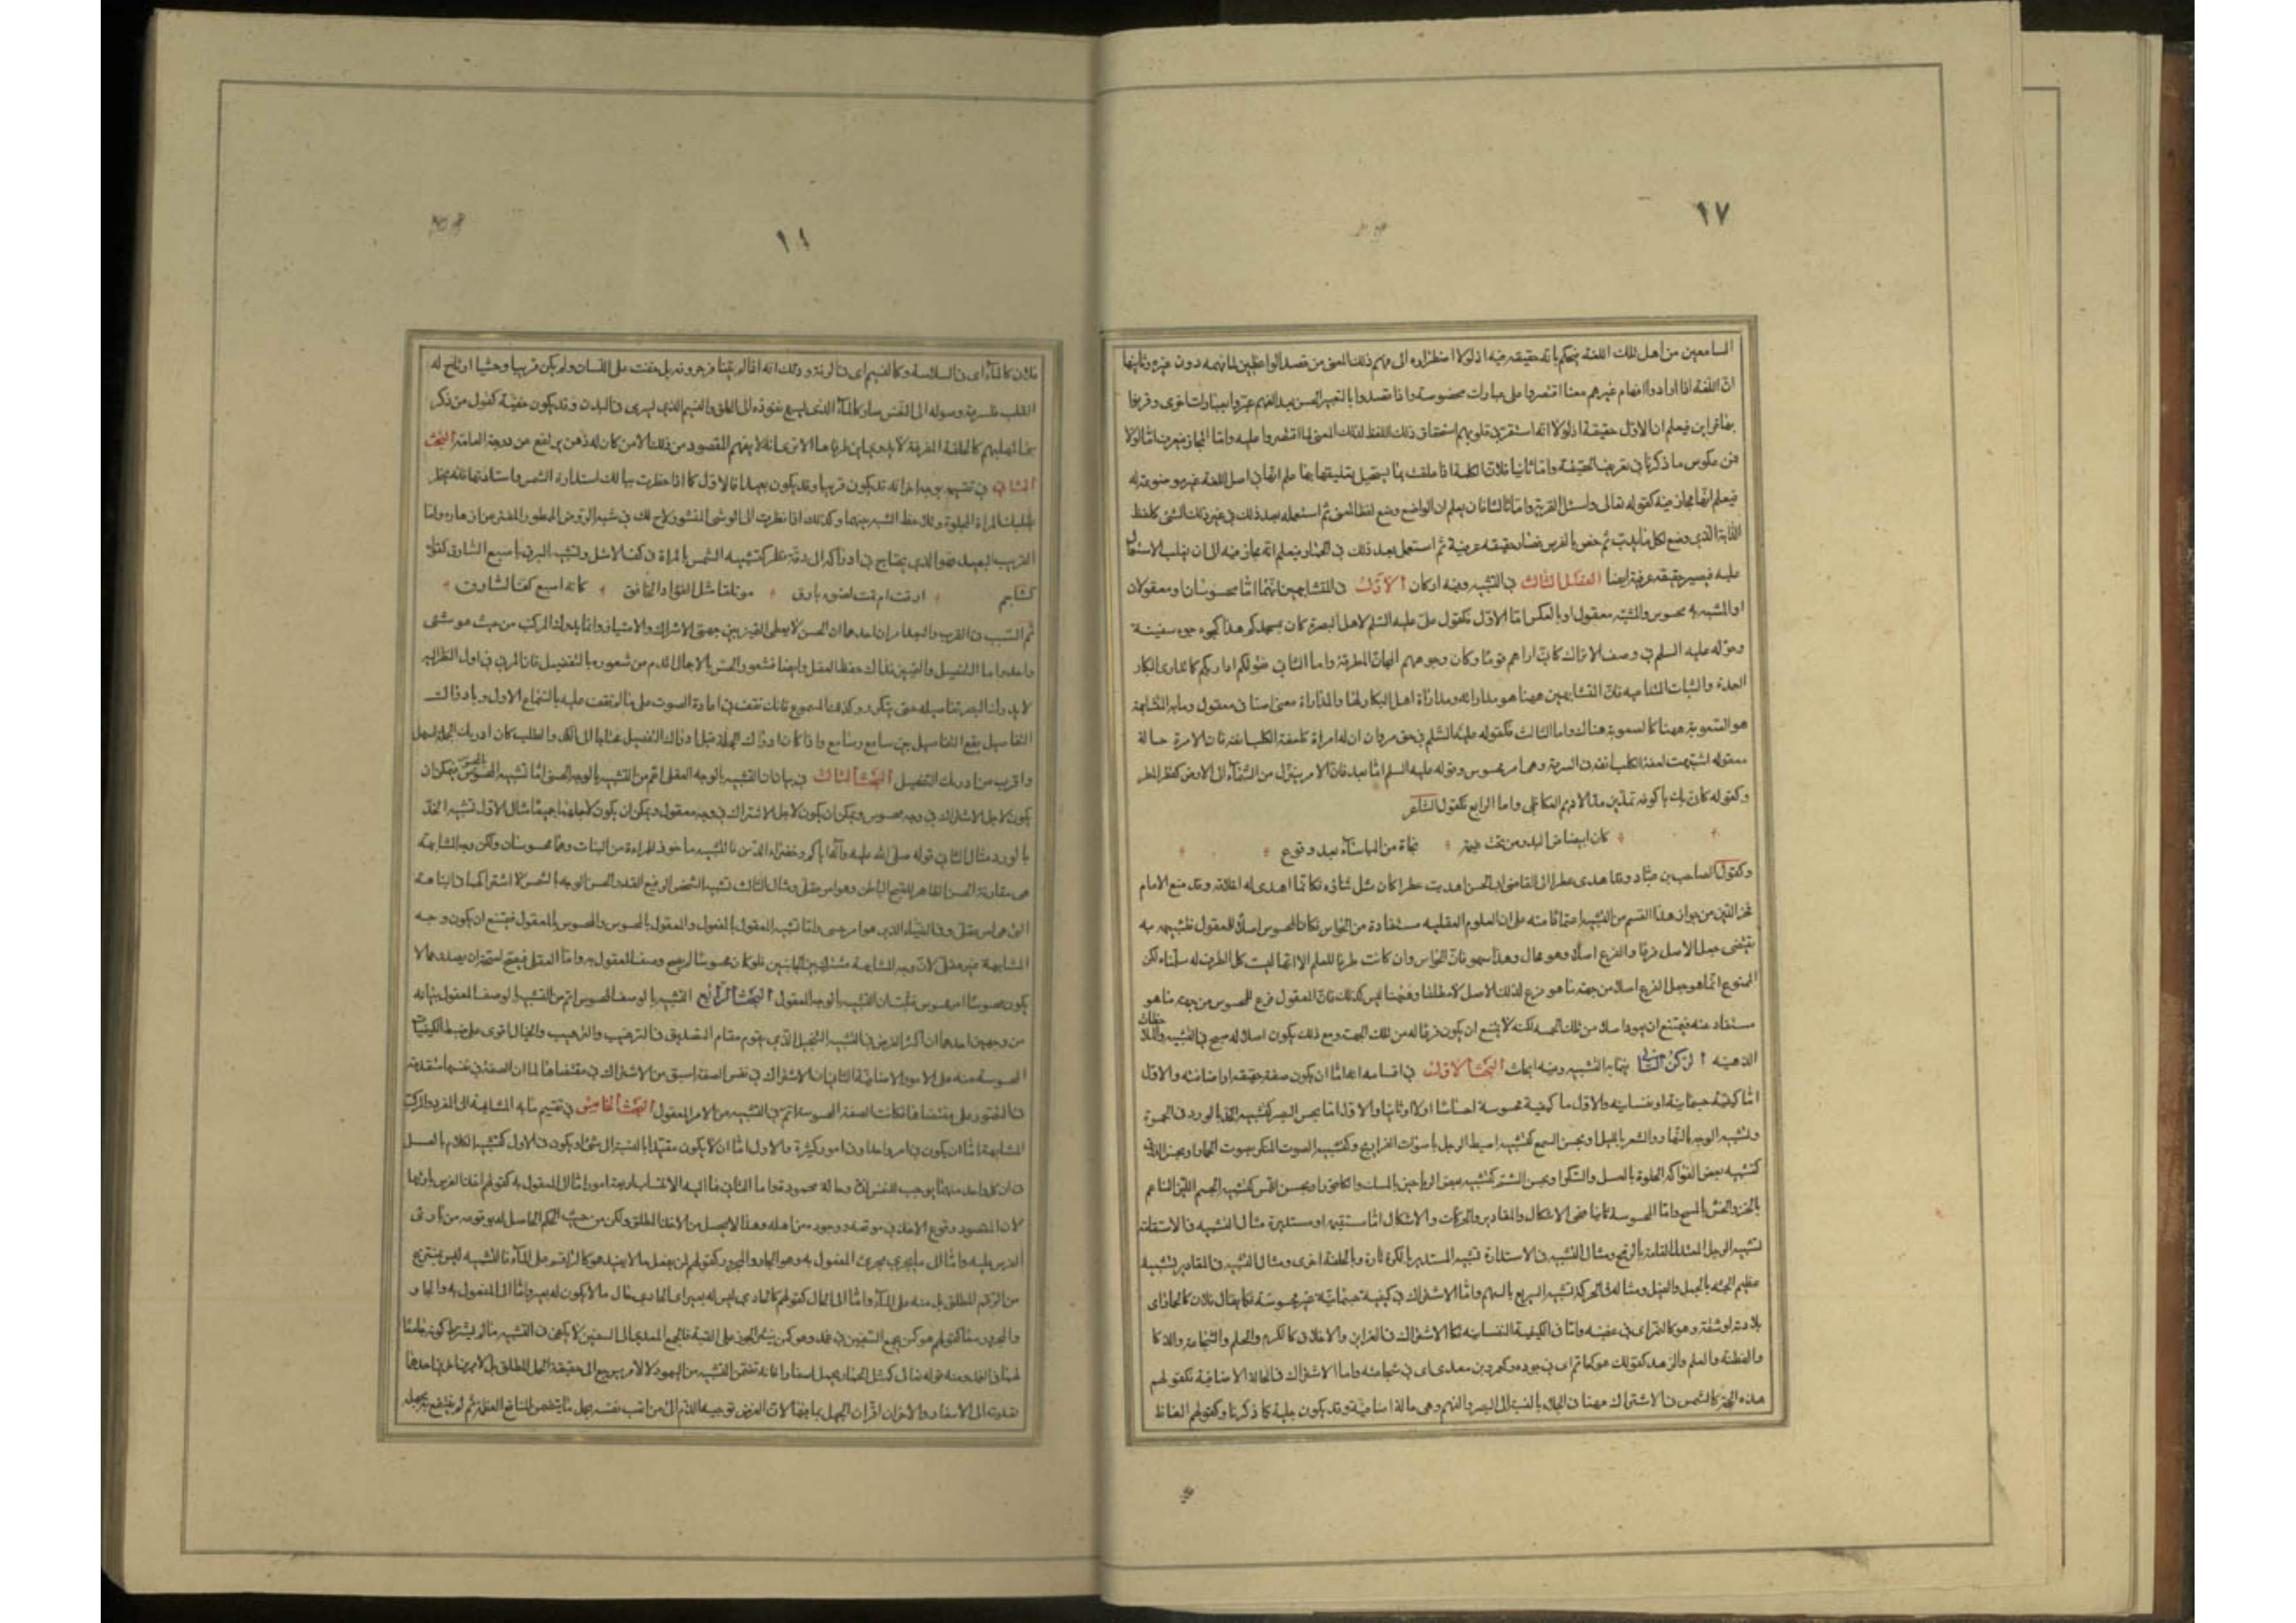 ١٧
السامعين من اهل تلك اللغة يحكم بانه حقيقه فيه اذ لولا اضطراره الى فهم ذلك المعنى من قصد الواضعين لما فهمه دون غيره وثانيها
انّ اللغة اذا ارادوا افهام غيرهم معنا اقتصروا على عبارات مخصوصة واذا قصدوا بالتعبير الحسن بعد الفهم عبّروا بعبارات اخرى وقرنوا
بها قراين فيعلم ان الاوّل حقيقة اذ لولا انه استقر في قلوبهم استحقاق ذلك اللفظ لذلك المعنى لما اقتصروا عليه وامّا المجاز فيعرف امّا اولا
فمن عكوس ما ذكرنا في تعريف الحقيقة وامّا ثانيا فلانّ الكلمة اذا علقت بما يستحيل تعليقها بها علم انّها في اصل اللغة غير موضوعة له
فيعلم انّها مجاز فيه كقوله تعالى واسئل القرية وامّا ثالثا فان يعلم ان الواضع وضع لفظا لمعنى ثم استعمله بعد ذلك في غير ذلك الشئ كلفظ
الدّابة الّذي وضع لكل ما يدبّ ثم خصّ بالفرس فصار حقيقه عرفية ثم استعمل بعد ذلك في الحمار فيعلم انّه مجاز فيه الى ان يغلب الاستعمال
عليه فيصير حقيقه عرفية ايضا الفصل الثالث في التشبيه وفيه اركان الاوّل في المتشابهين انّهما امّا محسوسان او معقولان
او المشبه به محسوس والمشبّه معقول او بالعكس امّا الاوّل فكقول عليّ عليه السّلم لاهل البصرة كان بمسجدكم هذا كجؤجؤ سفينة
وقوله عليه السلم في وصف الاتراك كانّى اراهم قومًا وكان وجوههم المجانّ المطرقة واما الثاني فقوله كم اداريكم كما تدارى البكار
العمدة والثياب المتداعيه فانّ المتشابهين ههنا هو مداراته ومداراة اهل البكار لها والمداراة معنى اضافى معقول وما به المشابهة
هو الصّعوبة ههنا كالصعوبة هناك واما الثالث فكقوله عليه السّلم في حق مروان ان له امرة كلعقة الكلب انفه فان الامرة حالة
معقوله اشبهت لعقة الكلب انفه في السرعة وهما امر محسوس وقوله عليه السلم امّا بعد فانّ الامر ينزل من السّماء الى الارض كقطر المطر
وكقوله كانّي بك يا كوفه تمدّين مدّ الاديم العكاظي واما الرابع فكقول الشاعر
كان ابيضاض البدر من تحت غيمه نجاة من الباسآء بعد وقوع
وكقول الصاحب بن عبّاد وقد اهدى عطرا الى القاضى ابى الحسن اهديت عطرا كان مثل ثنائه فكانّما اهدى له اخلاقه وقد منع الامام
فخر الدّين من جواز هذا القسم من التشبيه اعتمادًا منه على ان العلوم العقليه مستفادة من الحواس فكان المحسوس اصلاً للمعقول فتشبيهه به
يقتضى جعل الاصل فرعًا والفرع اصلاً وهو محال وهذا سهو فانّ الحواس وان كانت طرقا للعلم الا انها ليست كل الطرف له سلّمناه لكن
الممتنع انّما هو جعل الفرع اصلا من جهة ما هو فرع لذلك الاصل لا مطلقا وههنا ليس كذلك فانّ المعقول فرع للمحسوس من جهة ما هو
مستفاد عنه فيمتنع ان يعود اصلا من تلك الجهة لكنه لا يمتنع ان يكون فرعًا له من تلك الجهة ومع ذلك يكون اصلا له صح في التشبيه والملاحظات
الذهنيه الرّكن الثاني فيما به التشبيه وفيه ابحاث البحث الاوّل في اقسامه امّا ان يكون صفة حقيقه او اضافيّه والاوّل
امّا كيفيّة جسمانية او نفسانيه والاوّل ما كيفية محسوسة احساسًا اولا او ثانيا والاوّل امّا بحس البصر كتشبيه الخدّ بالورد في الحمرة
وتشبيه الوجه بالنّهار والشعر بالليل او بحسّ السمع كتشبيه اطيط الرحل باصوات الفراريج وكتشبيه الصوت المنكر بصوت الحمار او بحس الذوق
كتشبيه بعض الفواكه الحلوة بالعسل والسّكر او بحسّ الشمّ كتشبيه بعض الرياحين بالمسك والكافور او بحسّ اللمس كتشبيه الجسم الليّن الناعم
بالخزّ والخشن بالمسح وامّا المحسوسة ثانيا فهى الاشكال والمقادير والحركات والاشكال امّا مستقيمه او مستديرة مثال التشبيه في الاستقامة
تشبيه الرجل المعتدل القامة بالرّمح ومثال التشبيه في الاستدارة تشبيه المستدير بالكرة تارة وبالحلقة اخرى ومثال التشبيه في المقادير تشبيه
عظيم الجثّه بالجبل والفيل ومثاله في الحركة تشبيه السريع بالسهم وامّا الاشتراك في كيفية جسمانيّة غير محسوسة فكما يقال فلان كالحمار اى
والفطنة والعلم والزهد كقولك هو كحاتم اى في جوده وكعمرو بن معدى اى في شجاعته واما الاشتراك في الحالة الاضافيّة فكقولهم
هذه الحجّة كالشمس فالاشتراك ههنا في الجلاء بالنسبة الى البصر والفهم وهى حالة اضافيّة وقد يكون جلية كما ذكرنا وكقولهم الفاظ
١٨
فلان كالماء اى في السلاسة وكالنسيم اى في الرقة وذلك انه اذا لم يتنافر حروفه بل خفّت على اللسان ولم يكن غريبا وحشيا ارتاح له
القلب فلسرعة وصوله الى النفس صار كالماء الّذى يسرع نفوذه الى الحلق والنسيم الّذي يسرى في البدن وقد يكون خفيّة كقول من ذكر
بنى المهلبهم كالحلقة المفرغة لا يدرى اين طرفاها الا ترى انه لا يفهم المقصود من ذلك الا من كان له ذهن يرتفع عن درجة العامة البحث
الثاني في تقسيم بوجه اخر انه قد يكون قريبا وقد يكون بعيدا فالاوّل كما اذا خطرت ببالك استدارة الشمس واستنارتها فانه يخطر
بقلبك المراة المجلوة وتلاحظ الشبه بينهما وكذلك اذا نظرت الى الوشى المنشور لاح لك في شبه الروض الممطور المفترّ من ازهاره وامّا
الغريب البعيد فهو الذي يحتاج في ادراكه الى دقّة نظر كتشبيه الشمس بالمراة في كف الاشل وتشبيه البرق باصبع السّارق كقول
كشاجم ارقت ام نمت لضوء بارق مؤتلقا مثل الفؤاد الخافق كانه اصبع كفّ السّارق
ثم السّبب في القرب والبعد امران احدهما ان الحس لا يعطى التميز بين جهة الاشراك والامتياز وانّما يدرك المركب من حيث هو شئ
واحد واما التفصيل والتميز فذلك حظ العقل وايضا فشعور الحسّ بالاجمال اقدم من شعوره بالتفصيل فان المرئ في اول النظر اليه
لا يدرك البصر تفاصيله حتى يتكرر وكذلك المسموع فانك تقف في اعادة الصوت على ما لم تقف عليه بالسّماع الاول وبادراك
التفاصيل يقع التفاصيل بين سامع وسامع واذا كان ادراك الجملة قبل ادراك التفصيل محتاجا الى تامّل والطلب كان ادراك الجملة اسهل
واقرب من ادراك التفصيل البحث الثالث في بيان ان التشبيه بالوجه العقلى اعم من التشبيه بالوجه الحسى امّا تشبيه المحسوس بالمحسوس فيمكن ان
يكون لاجل الاشتراك في وجه محسوس ويمكن ان يكون لاجل الاشتراك في وجه معقول ويمكن ان يكون لاجلهما جميعًا مثال الاوّل تشبيه الخدّ
بالورد مثال الثاني قوله صلى الله عليه وآله اياكم وخضراء الدّمن فالشبه ماخوذ للمراءة من النبات وهما محسوسان ولكن وجه المشابهة
هى مقارنة الحسن الظاهر للقبح الباطن وهو امر عقلى ومثال الثالث تشبيه الشخص الرفيع القدر الحسن الوجه بالشمس لاشتراكهما في النباهة
الّتى هى امر عقلى وفي الضّياء الّذى هو امر حسى وامّا تشبيه المعقول بالمعقول والمعقول بالمحسوس والمحسوس بالمعقول فيمتنع ان يكون وجه
المشابهة غير عقلى لانّ وجه المشابهة مشترك بين الجانبين فلو كان محسوسًا لم يصح وصف المعقول به وامّا العقلى فيصحّ
يكون محسوسًا امر محسوس فثبت ان التشبيه بالوجه المعقول البحث الرّابع التشبيه بالوصف المحسوس اتم من التشبيه بالوصف المعقول بيانه
من وجهين احدهما ان اكثر الغرض في التشبيه التخييل الّذي يقوم مقام التصديق في الترغيب والترهيب والخيال اقوى على ضبط الكيفيات
المحسوسة منه على الامور الاضافيّة الثاني ان الاشتراك في نفس الصفة اسبق من الاشتراك في مقتضاها لما ان الصفة في نفسها متقدمة
في التصور على مقتضاها فكانت الصفة المحسوسة اتم في التشبيه من الامر المعقول البحث الخامس في تقسيم ما به المشابهة الى المفرد والمركب
المشابهة امّا ان يكون في امر واحد او في امور كثيرة والاول امّا ان لا يكون مقيّدا بالنسبة الى شئ او يكون فالاول كتشبيه الكلام بالعسل
في ان كل واحد منهما يوجب للنفس لذّة وحالة محمودة واما الثاني فما اليه الانتساب اربعة امور امّا الى المفعول به كقولهم اخذ القوس باريها
لانّ المقصود وقوع الاخذ في موقعه ووجوده من اهله وهذا لا يحصل من الاخذ المطلق ولكن من حيث الحكم الحاصل له بوقوعه من بارى
القوس عليه وامّا الى ما يجرى مجرى المفعول به وهو الجار والمجرور كقولهم لمن يفعل ما لا يفيد هو كالراقم على الماء فالتشبيه ليس بمنتزع
من الرقم المطلق بل منه على الماء وامّا الى الحال كقولهم كالحادي ليس له بعير اى الحادي حال ما لا يكون له بعير وامّا الى المفعول به والجار و
والمجرور معًا كقولهم هو كمن يجمع السّيفين في غمد وهو كمن ينثر الجوز على القبّة فالجمع المعدى الى السيفين لا يكفى في التشبيه ما لم يشترط كونه جامعًا
لهما في الغمد ومنه قوله تعالى كمثل الحمار يحمل اسفارا فانه يتضمن التشبيه من اليهود لا لامر يرجع الى حقيقة الحمل المطلق بل لامرين اخرين احدهما
تعديه الى الاسفار والاخر ان اقتران الجهل بما فيها لانّ الغرض توجيه الذّم الى من اتعب نفسه بحمل ما يتضمن المنافع العظيمة ثم لم ينتفع به بجهله